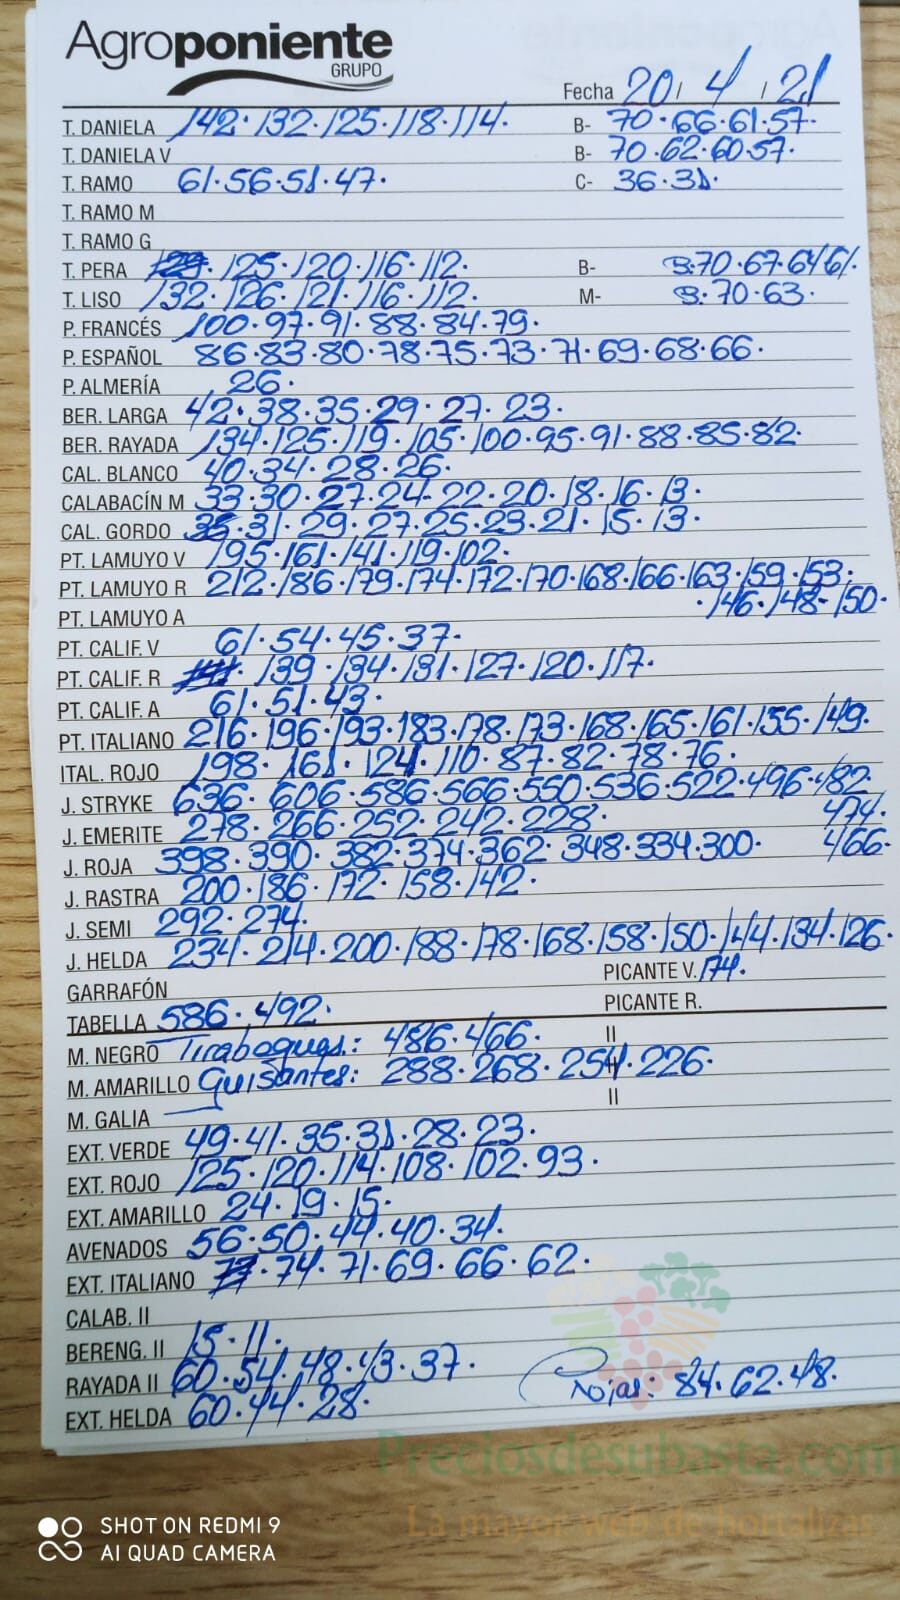 Agroponiente
GRUPO
Fecha 20/ 4 / 21
T. DANIELA 142·132·125·118·114· B- 70·66·61·57·
T. DANIELA V B- 70·62·60·57·
T. RAMO 61·56·51·47· C- 36·31·
T. RAMO M
T. RAMO G
T. PERA 125·120·116·112· B- B·70·67·64·61·
T. LISO 132·126·121·116·112· M- B·70·63·
P. FRANCÉS 100·97·91·88·84·79·
P. ESPAÑOL 86·83·80·78·75·73·71·69·68·66·
P. ALMERÍA 26·
BER. LARGA 42·38·35·29·27·23·
BER. RAYADA 134·125·119·105·100·95·91·88·85·82·
CAL. BLANCO 40·34·28·26·
CALABACÍN M 33·30·27·24·22·20·18·16·13·
CAL. GORDO 35·31·29·27·25·23·21·15·13·
PT. LAMUYO V 195·161·141·119·102·
PT. LAMUYO R 212·186·179·174·172·170·168·166·163·159·153·
PT. LAMUYO A ·146·148·150·
PT. CALIF. V 61·54·45·37·
PT. CALIF. R 139·134·131·127·120·117·
PT. CALIF. A 61·51·43·
PT. ITALIANO 216·196·193·183·178·173·168·165·161·155·149·
ITAL. ROJO 198·161·124·110·87·82·78·76·
J. STRYKE 636·606·586·566·550·536·522·496·482·
J. EMERITE 278·266·252·242·228· 474·
J. ROJA 398·390·382·374·362·348·334·300· 466·
J. RASTRA 200·186·172·158·142·
J. SEMI 292·274·
J. HELDA 234·214·200·188·178·168·158·150·144·134·126·
GARRAFÓN PICANTE V. 174·
TABELLA 586·492· PICANTE R.
M. NEGRO Tirabeques: 486·466· II
M. AMARILLO Guisantes: 288·268·254·226· II
M. GALIA II
EXT. VERDE 49·41·35·31·28·23·
EXT. ROJO 125·120·114·108·102·93·
EXT. AMARILLO 24·19·15·
AVENADOS 56·50·44·40·34·
EXT. ITALIANO 77·74·71·69·66·62·
CALAB. II
BERENG. II 15·11·
RAYADA II 60·54·48·43·37·
EXT. HELDA 60·44·28· Rojas: 84·62·48·
Preciosdesubasta.com
La mayor web de hortalizas
SHOT ON REDMI 9
AI QUAD CAMERA